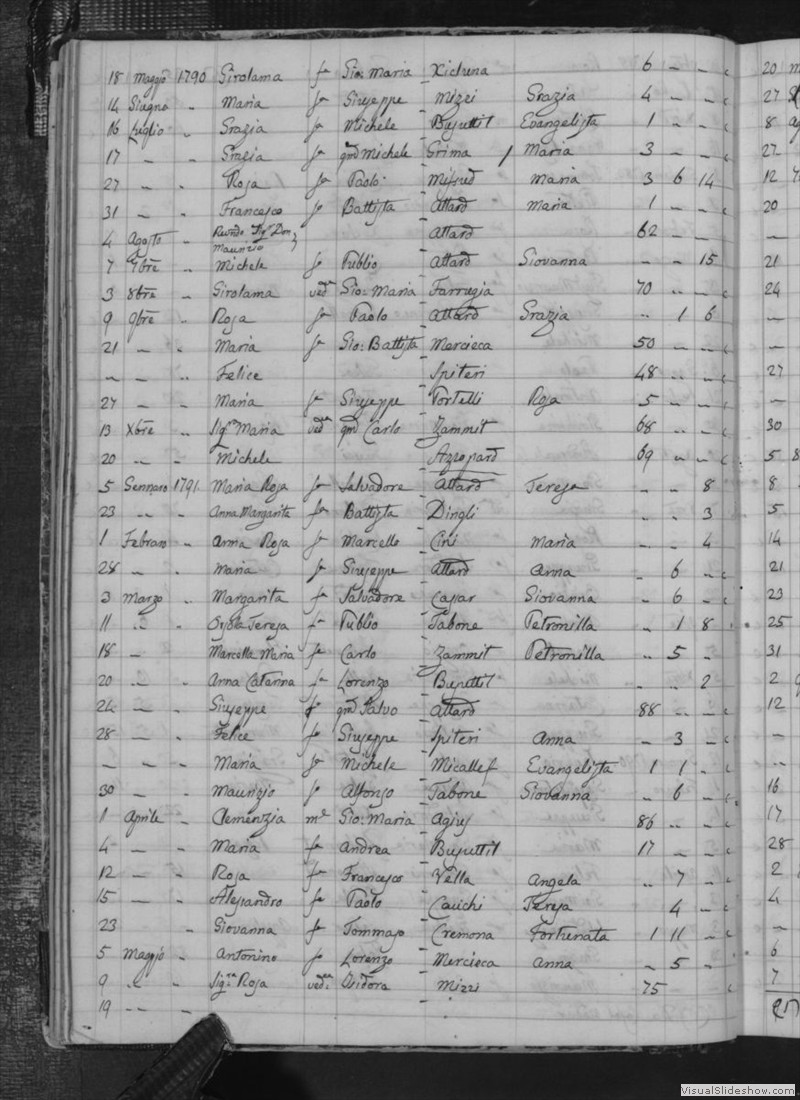 18 Maggio 1790 Girolama fa Gio: Maria Xicluna 6 — — 20
14 Giugno " Maria fa Giuseppe Mizzi Grazia 4 — — 27
16 Luglio " Grazia fa Michele Busuttil Evangelista 1 — — 8
17 — " Grazia fa qm Michele Grima / Maria 3 — — 27
27 — " Rosa fa Paolo Mifsud Maria 3 6 14 12
31 — " Francesco fo Battista Attard Maria 1 — — 20
4 Agosto " Revndo Sigr Don Maurizio } Attard 62 — — —
7 7bre " Michele fo Publio Attard Giovanna — — 15 21
3 8bre " Girolama veda Gio: Maria Farrugia 70 — — 24
9 9bre " Rosa fa Paolo Attard Grazia " 1 6 —
21 — " Maria fa Gio: Battista Mercieca 50 — — —
— — " Felice Spiteri 48 — — 27
27 — " Maria fa Giuseppe Portelli Rosa 5 — —
13 Xbre " Sigra Maria veda qm Carlo Zammit 68 — — 30
20 " " Michele Azzopard 69 — — 5
5 Gennaro 1791 Maria Rosa fa Salvadore Attard Teresa — — 8 8
23 " " Anna Margarita fa Battista Dingli — — 3 5
1 Febraro " Anna Rosa fa Marcello Cini Maria — — 4 14
28 — " Maria fa Giuseppe Attard Anna — 6 — 21
3 Marzo " Margarita fa Salvadore Casar Giovanna — 6 — 23
11 " " Teresa fa Publio Tabone Petronilla — 1 8 25
18 — Marcella Maria fa Carlo Zammit Petronilla " 5 " 31
20 " " Anna Catarina fa Lorenzo Busuttil " " 2 2
24 — Giuseppe fo qm Salvo Attard 88 — — 12
28 — Felice fo Giuseppe Spiteri Anna — 3 — —
— — " Maria fa Michele Micallef Evangelista 1 1 — —
30 — " Maurizio fo Alfonso Tabone Giovanna " 6 — 16
1 Aprile " Clemenzia me Gio: Maria Agius 86 " — 17
4 — " Maria fa Andrea Busuttil 17 — — 28
12 — " Rosa fa Francesco Vella Angela " 7 — 2
15 — " Alessandro fo Paolo Cauchi Teresa 4 — 4
23 " Giovanna fa Tommaso Cremona Fortunata 1 11 — —
5 Maggio " Antonino fo Lorenzo Mercieca Anna — 5 — 6
9 " " Sigra Rosa veda Isidora Mizzi 75 7
19 — —
VisualSlideshow.com